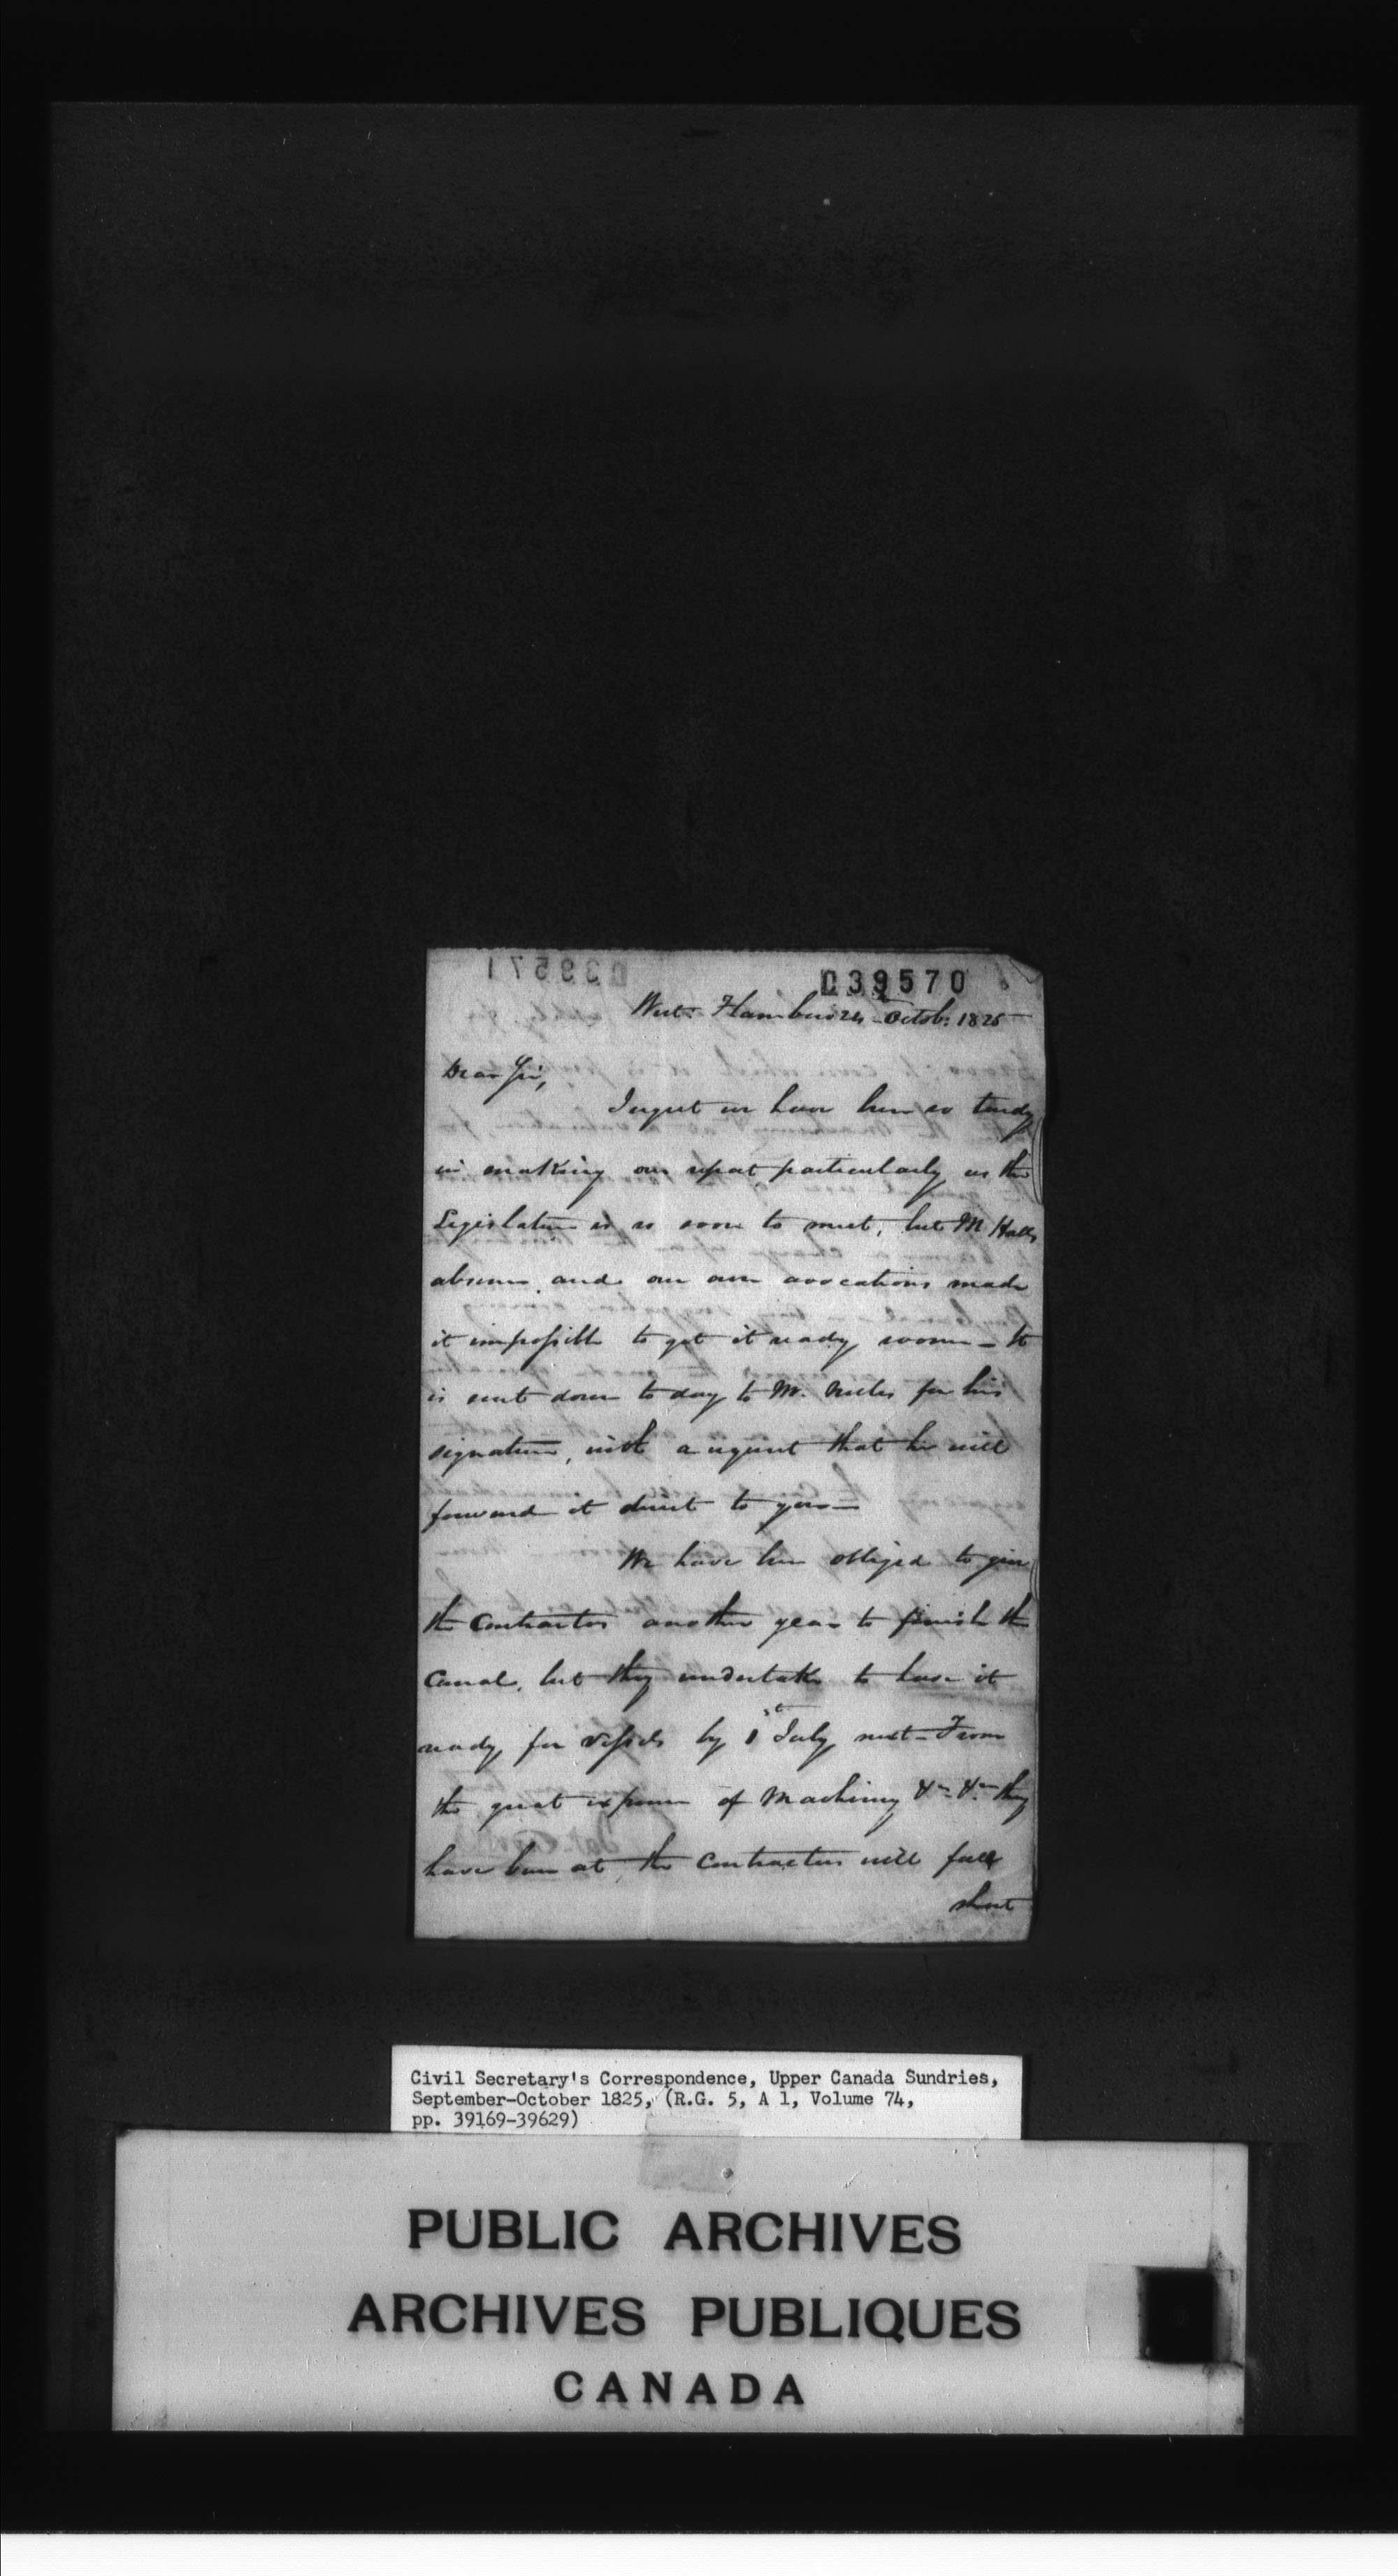 039570
West Flamboro 24 Octob: 1825
Dear Sir,
I regret we have been so tardy
in making our report particularly as the
Legislature is so soon to meet, but Mr Halls
absence and our own avocations made
it impossible to get it ready sooner — It
is sent down to day to Mr. Nelles for his
signature, with a request that he will
forward it direct to you —
We have been obliged to give
the Contractors another year to finish the
Canal, but they undertake to have it
ready for vessels by 1st July next — From
the great expense of Machinery &c. &c. they
have been at the Contractors will fall
short
Civil Secretary's Correspondence, Upper Canada Sundries,
September-October 1825, (R.G. 5, A 1, Volume 74,
pp. 39169-39629)
PUBLIC ARCHIVES
ARCHIVES PUBLIQUES
CANADA